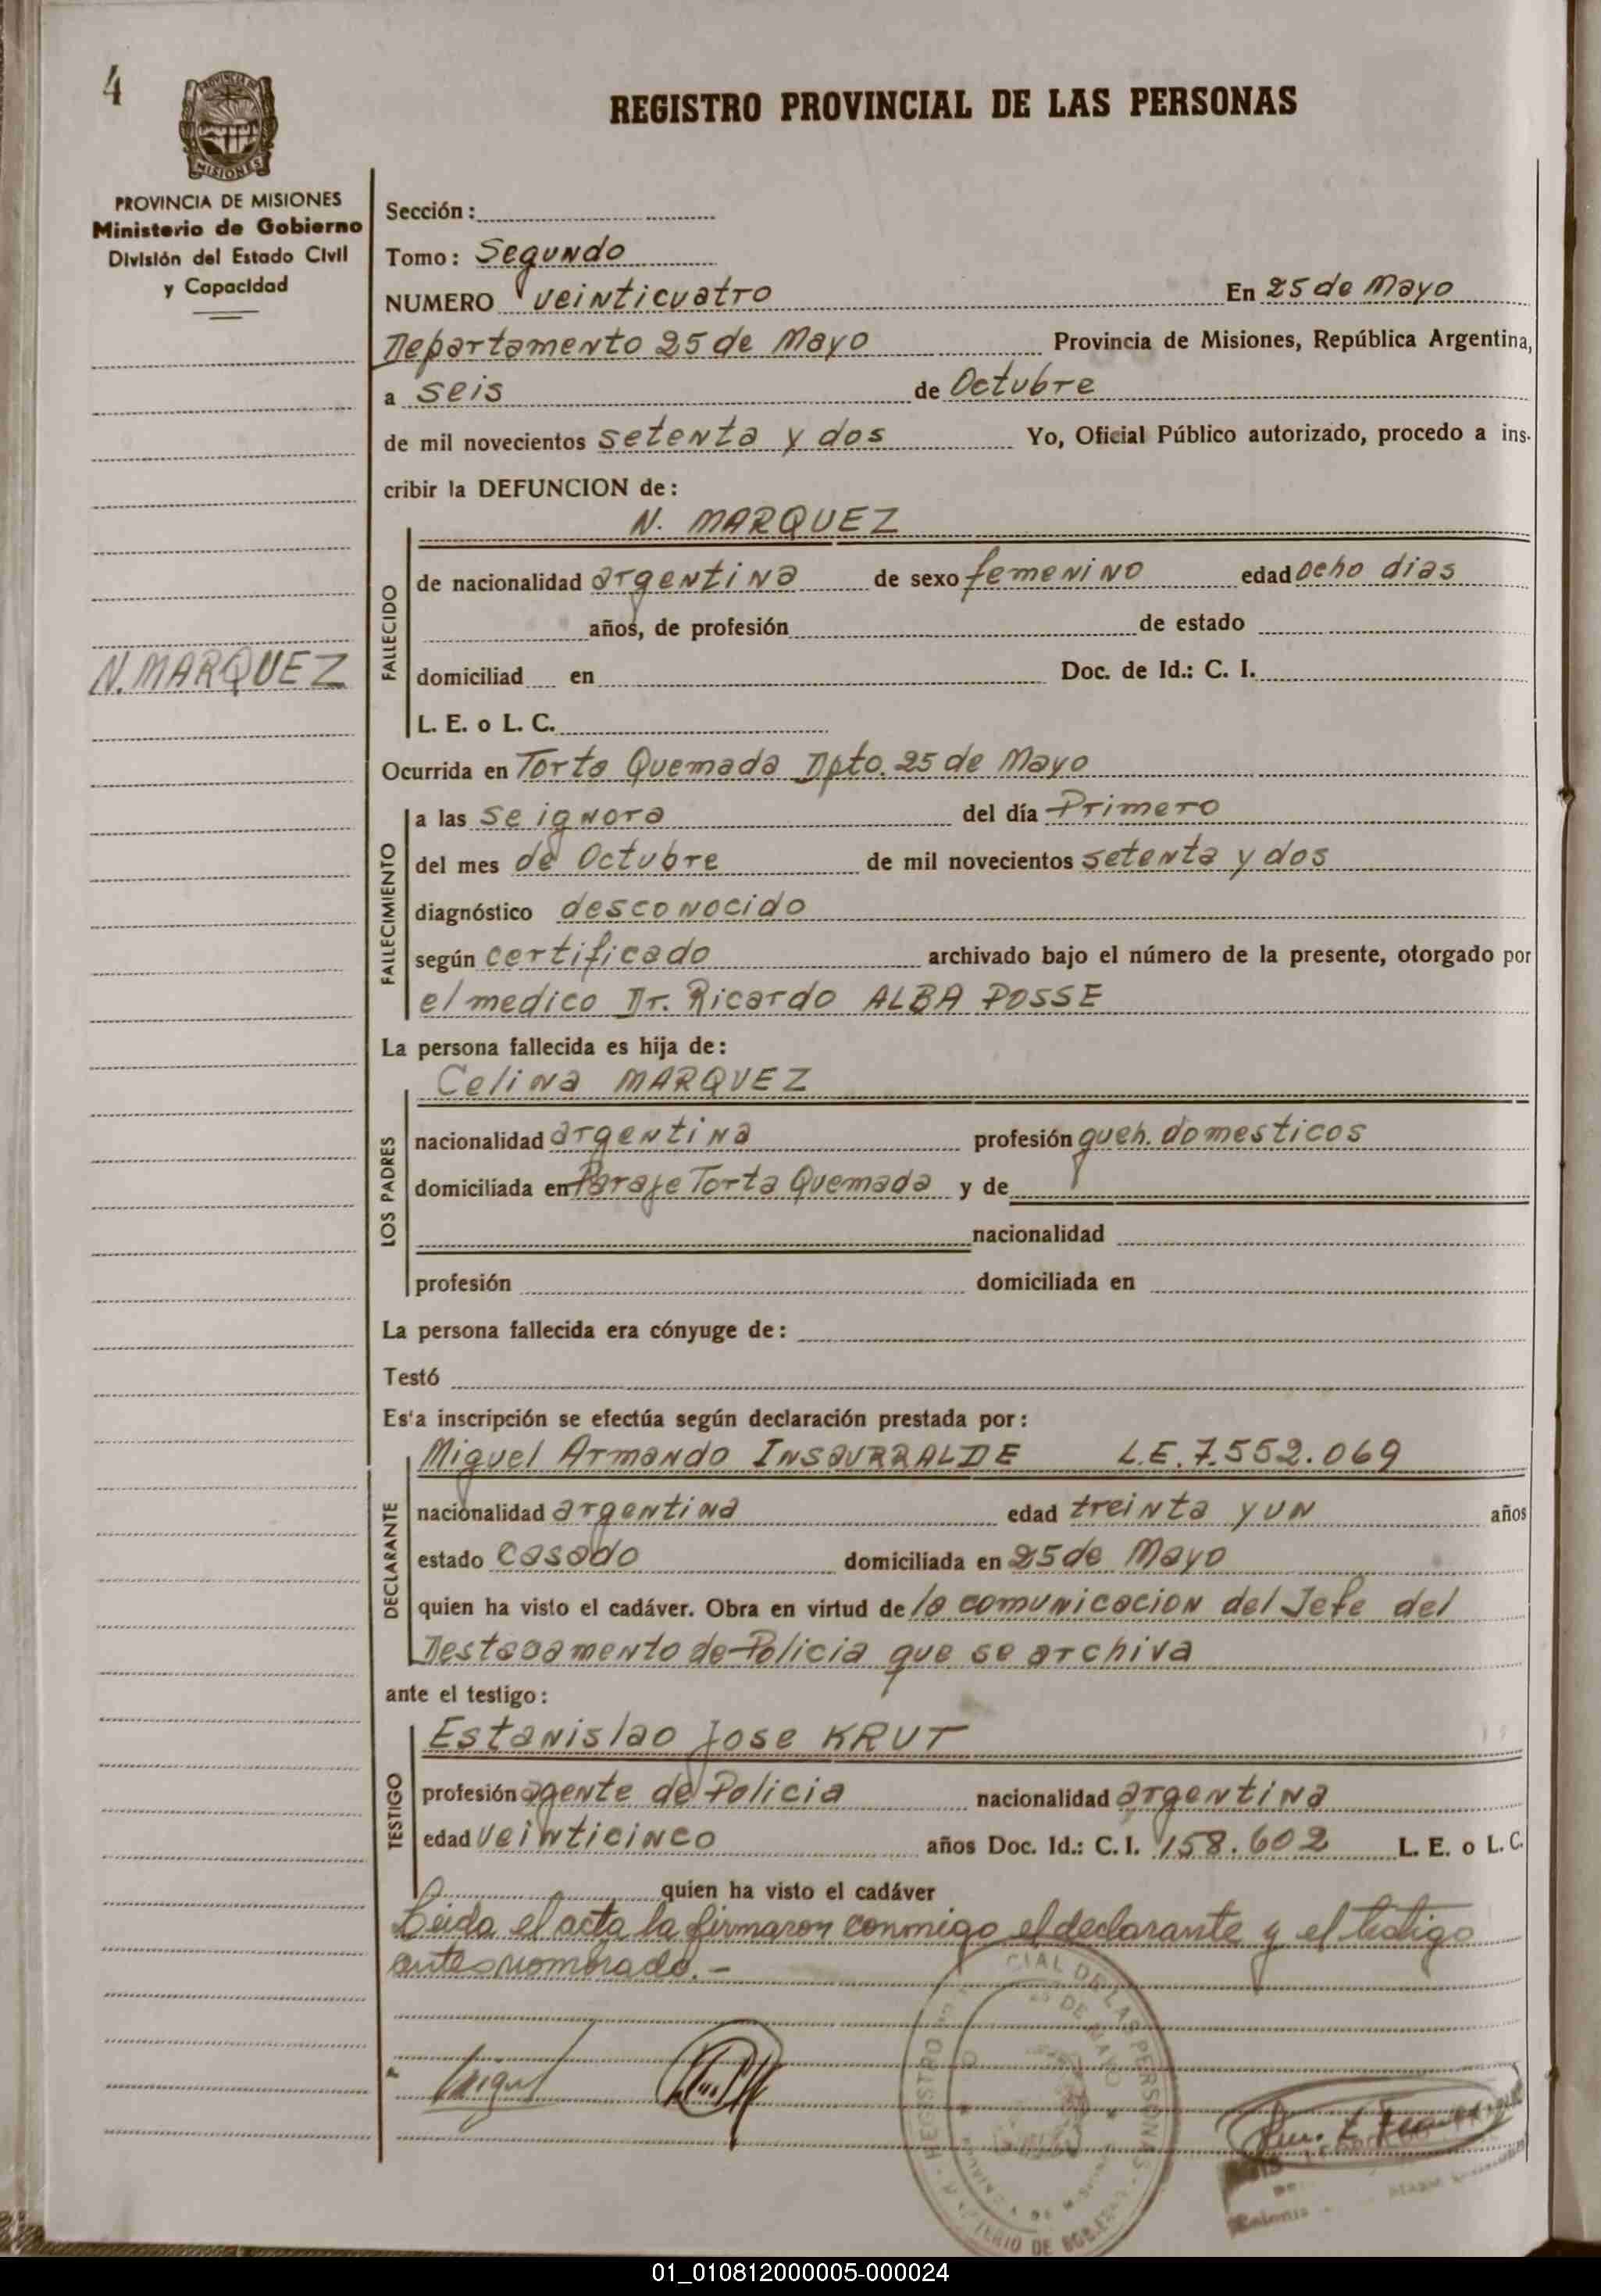 4
PROVINCIA DE MISIONES
REGISTRO PROVINCIAL DE LAS PERSONAS
PROVINCIA DE MISIONES
Ministerio de Gobierno
División del Estado Civil
y Capacidad
N. MARQUEZ
Sección:
Tomo: Segundo
NUMERO veinticuatro En 25 de Mayo
Departamento 25 de Mayo Provincia de Misiones, República Argentina,
a seis de Octubre
de mil novecientos setenta y dos Yo, Oficial Público autorizado, procedo a ins-
cribir la DEFUNCION de:
N. MARQUEZ
FALLECIDO
de nacionalidad argentina de sexo femenino edad ocho dias
años, de profesión de estado
domiciliad en Doc. de Id.: C. I.
L. E. o L. C.
Ocurrida en Torta Quemada Dpto. 25 de Mayo
FALLECIMIENTO
a las se ignora del día Primero
del mes de Octubre de mil novecientos setenta y dos
diagnóstico desconocido
según certificado archivado bajo el número de la presente, otorgado por
el medico Dr. Ricardo ALBA POSSE
La persona fallecida es hija de:
Celina MARQUEZ
LOS PADRES
nacionalidad argentina profesión queh. domesticos
domiciliada en Paraje Torta Quemada y de
nacionalidad
profesión domiciliada en
La persona fallecida era cónyuge de:
Testó
Esta inscripción se efectúa según declaración prestada por:
Miguel Armando INSAURRALDE L.E. 7.552.069
DECLARANTE
nacionalidad argentina edad treinta y un años
estado casado domiciliada en 25 de Mayo
quien ha visto el cadáver. Obra en virtud de la comunicacion del Jefe del
Destacamento de Policia que se archiva
ante el testigo:
Estanislao Jose KRUT
TESTIGO
profesión agente de Policia nacionalidad argentina
edad veinticinco años Doc. Id.: C. I. 158.602 L. E. o L. C.
quien ha visto el cadáver
Leida el acta la firmaron conmigo el declarante y el testigo
antes nombrado.-
REGISTRO CIAL DE LAS PERSONAS
DE MAYO
TERIO DE GOBIERNO
Colonia
01_010812000005-000024